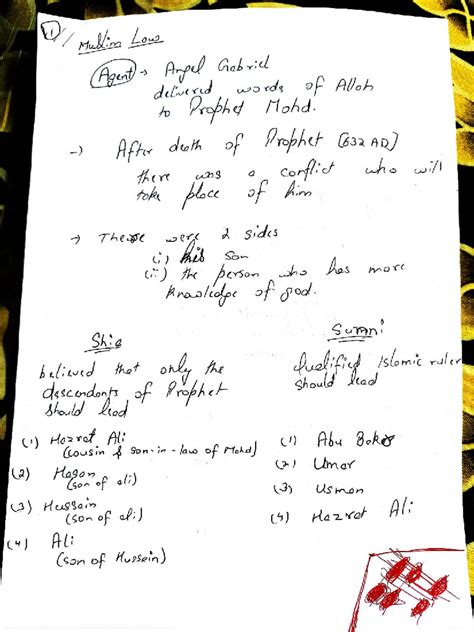 1
Muslim Law
Agent → Angel Gabriel
delivered words of Allah
to Prophet Mohd.
→ After death of Prophet [632 AD]
there was a conflict who will
take place of him
→ There were 2 sides
(i) his son
(ii) the person who has more
knowledge of god.
Shia
believed that only the
descendants of Prophet
should lead
(1) Hazrat Ali
(cousin & son-in-law of Mohd)
(2) Hasan
(son of ali)
(3) Hussain
(son of ali)
(4) Ali
(son of Hussein)
Sunni
Qualified Islamic ruler
should lead
(1) Abu Bakr
(2) Umar
(3) Usman
(4) Hazrat Ali